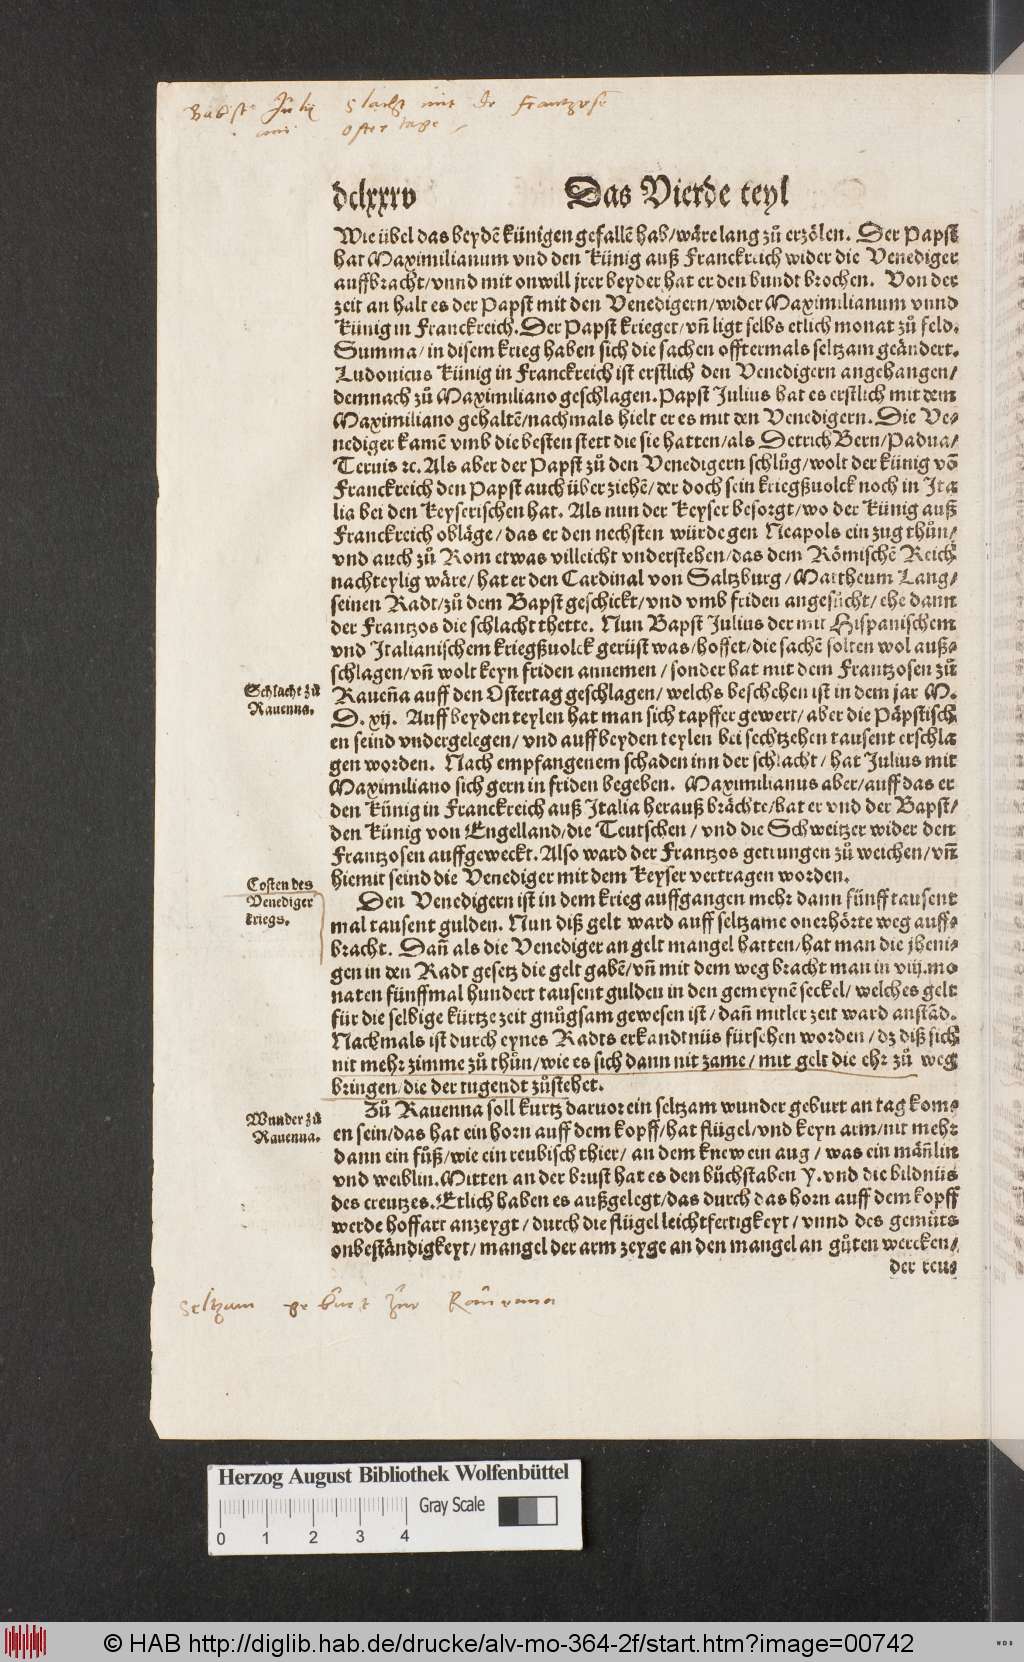 Babst Julij Slacht mit de Frantzose
am Oster tage
dclxxxv Das Vierde teyl
Wie übel das beydē künigen gefallē hab/wäre lang zů erzölen. Der Papst
hat Maximilianum vnd den künig auß Franckreich wider die Venediger
auffbracht/vnnd mit onwill jrer beyder hat er den bundt brochen. Von der
zeit an halt es der Papst mit den Venedigern/wider Maximilianum vnnd
künig in Franckreich. Der Papst krieget/vñ ligt selbs etlich monat zů feld.
Summa/in disem krieg haben sich die sachen offtermals seltzam geändert.
Ludouicus künig in Franckreich ist erstlich den Venedigern angehangen/
demnach zů Maximiliano geschlagen. Papst Julius hat es erstlich mit dem
Maximiliano gehaltē/nachmals hielt er es mit den Venedigern. Die Ve⸗
nediger kamē vmb die besten stett die sie hatten/als Detrich Bern/Padua/
Teruis ⁊c. Als aber der Papst zů den Venedigern schlůg/wolt der künig vō
Franckreich den Papst auch über ziehē/der doch sein kriegßuolck noch in Ita
lia bei den keyserischen hat. Als nun der keyser besorgt/wo der künig auß
Franckreich obläge/das er den nechsten würde gen Neapols ein zug thůn/
vnd auch zů Rom etwas villeicht vnderstehen/das dem Römischē Reich
nachteylig wäre/hat er den Cardinal von Saltzburg/Mattheum Lang/
seinen Radt/zů dem Bapst geschickt/vnd vmb friden angesůcht/ehe dann
der Frantzos die schlacht thette. Nun Bapst Julius der mit Hispanischem
vnd Italianischem kriegßuolck gerüst was/hoffet/die sachē solten wol auß⸗
schlagen/vñ wolt keyn friden annemen/sonder hat mit dem Frantzosen zů
Schlacht zů
Rauenna.
Raueña auff den Ostertag geschlagen/welchs beschehen ist in dem jar M.
D. xij. Auff beyden teylen hat man sich tapffer gewert/aber die Päpstisch
en seind vndergelegen/vnd auff beyden teylen bei sechtzehen tausent erschla
gen worden. Nach empfangenem schaden inn der schlacht/hat Julius mit
Maximiliano sich gern in friden begeben. Maximilianus aber/auff das er
den künig in Franckreich auß Italia herauß brächte/hat er vnd der Bapst/
den künig von Engelland/die Teutschen/vnd die Schweitzer wider den
Frantzosen auffgeweckt. Also ward der Frantzos getrungen zů weichen/vñ
hiemit seind die Venediger mit dem keyser vertragen worden.
Costen des
Venediger
kriegs.
Den Venedigern ist in dem krieg auffgangen mehr dann fünff tausent
mal tausent gulden. Nun diß gelt ward auff seltzame onerhörte weg auff⸗
bracht. Dañ als die Venediger an gelt mangel hatten/hat man die jheni⸗
gen in den Radt gesetz die gelt gabē/vñ mit dem weg bracht man in viij. mo
naten fünffmal hundert tausent gulden in den gemeynē seckel/welches gelt
für die selbige kürtze zeit gnůgsam gewesen ist/dañ mitler zeit ward anstād.
Nachmals ist durch eynes Radts erkandtnüs fürsehen worden/dz diß sich
nit mehr zimme zů thůn/wie es sich dann nit zame/mit gelt die ehr zů weg
bringen/die der tugendt zůstehet.
Wunder zů
Rauenna.
Zů Rauenna soll kurtz daruor ein seltzam wunder geburt an tag kom⸗
en sein/das hat ein horn auff dem kopff/hat flügel/vnd keyn arm/nit mehr
dann ein fůß/wie ein reubisch thier/an dem knew ein aug/was ein män̄lin
vnd weiblin. Mitten an der brust hat es den bůchstaben Y. vnd die bildnüs
des creutzes. Etlich haben es außgelegt/das durch das horn auff dem kopff
werde hoffart anzeygt/durch die flügel leichtfertigkeyt/vnnd des gemüts
onbeständigkeyt/mangel der arm zeyge an den mangel an gůten wercken/
der reu⸗
Seltzam geburt zur Rauenna
Herzog August Bibliothek Wolfenbüttel
Gray Scale
0 1 2 3 4
© HAB http://diglib.hab.de/drucke/alv-mo-364-2f/start.htm?image=00742